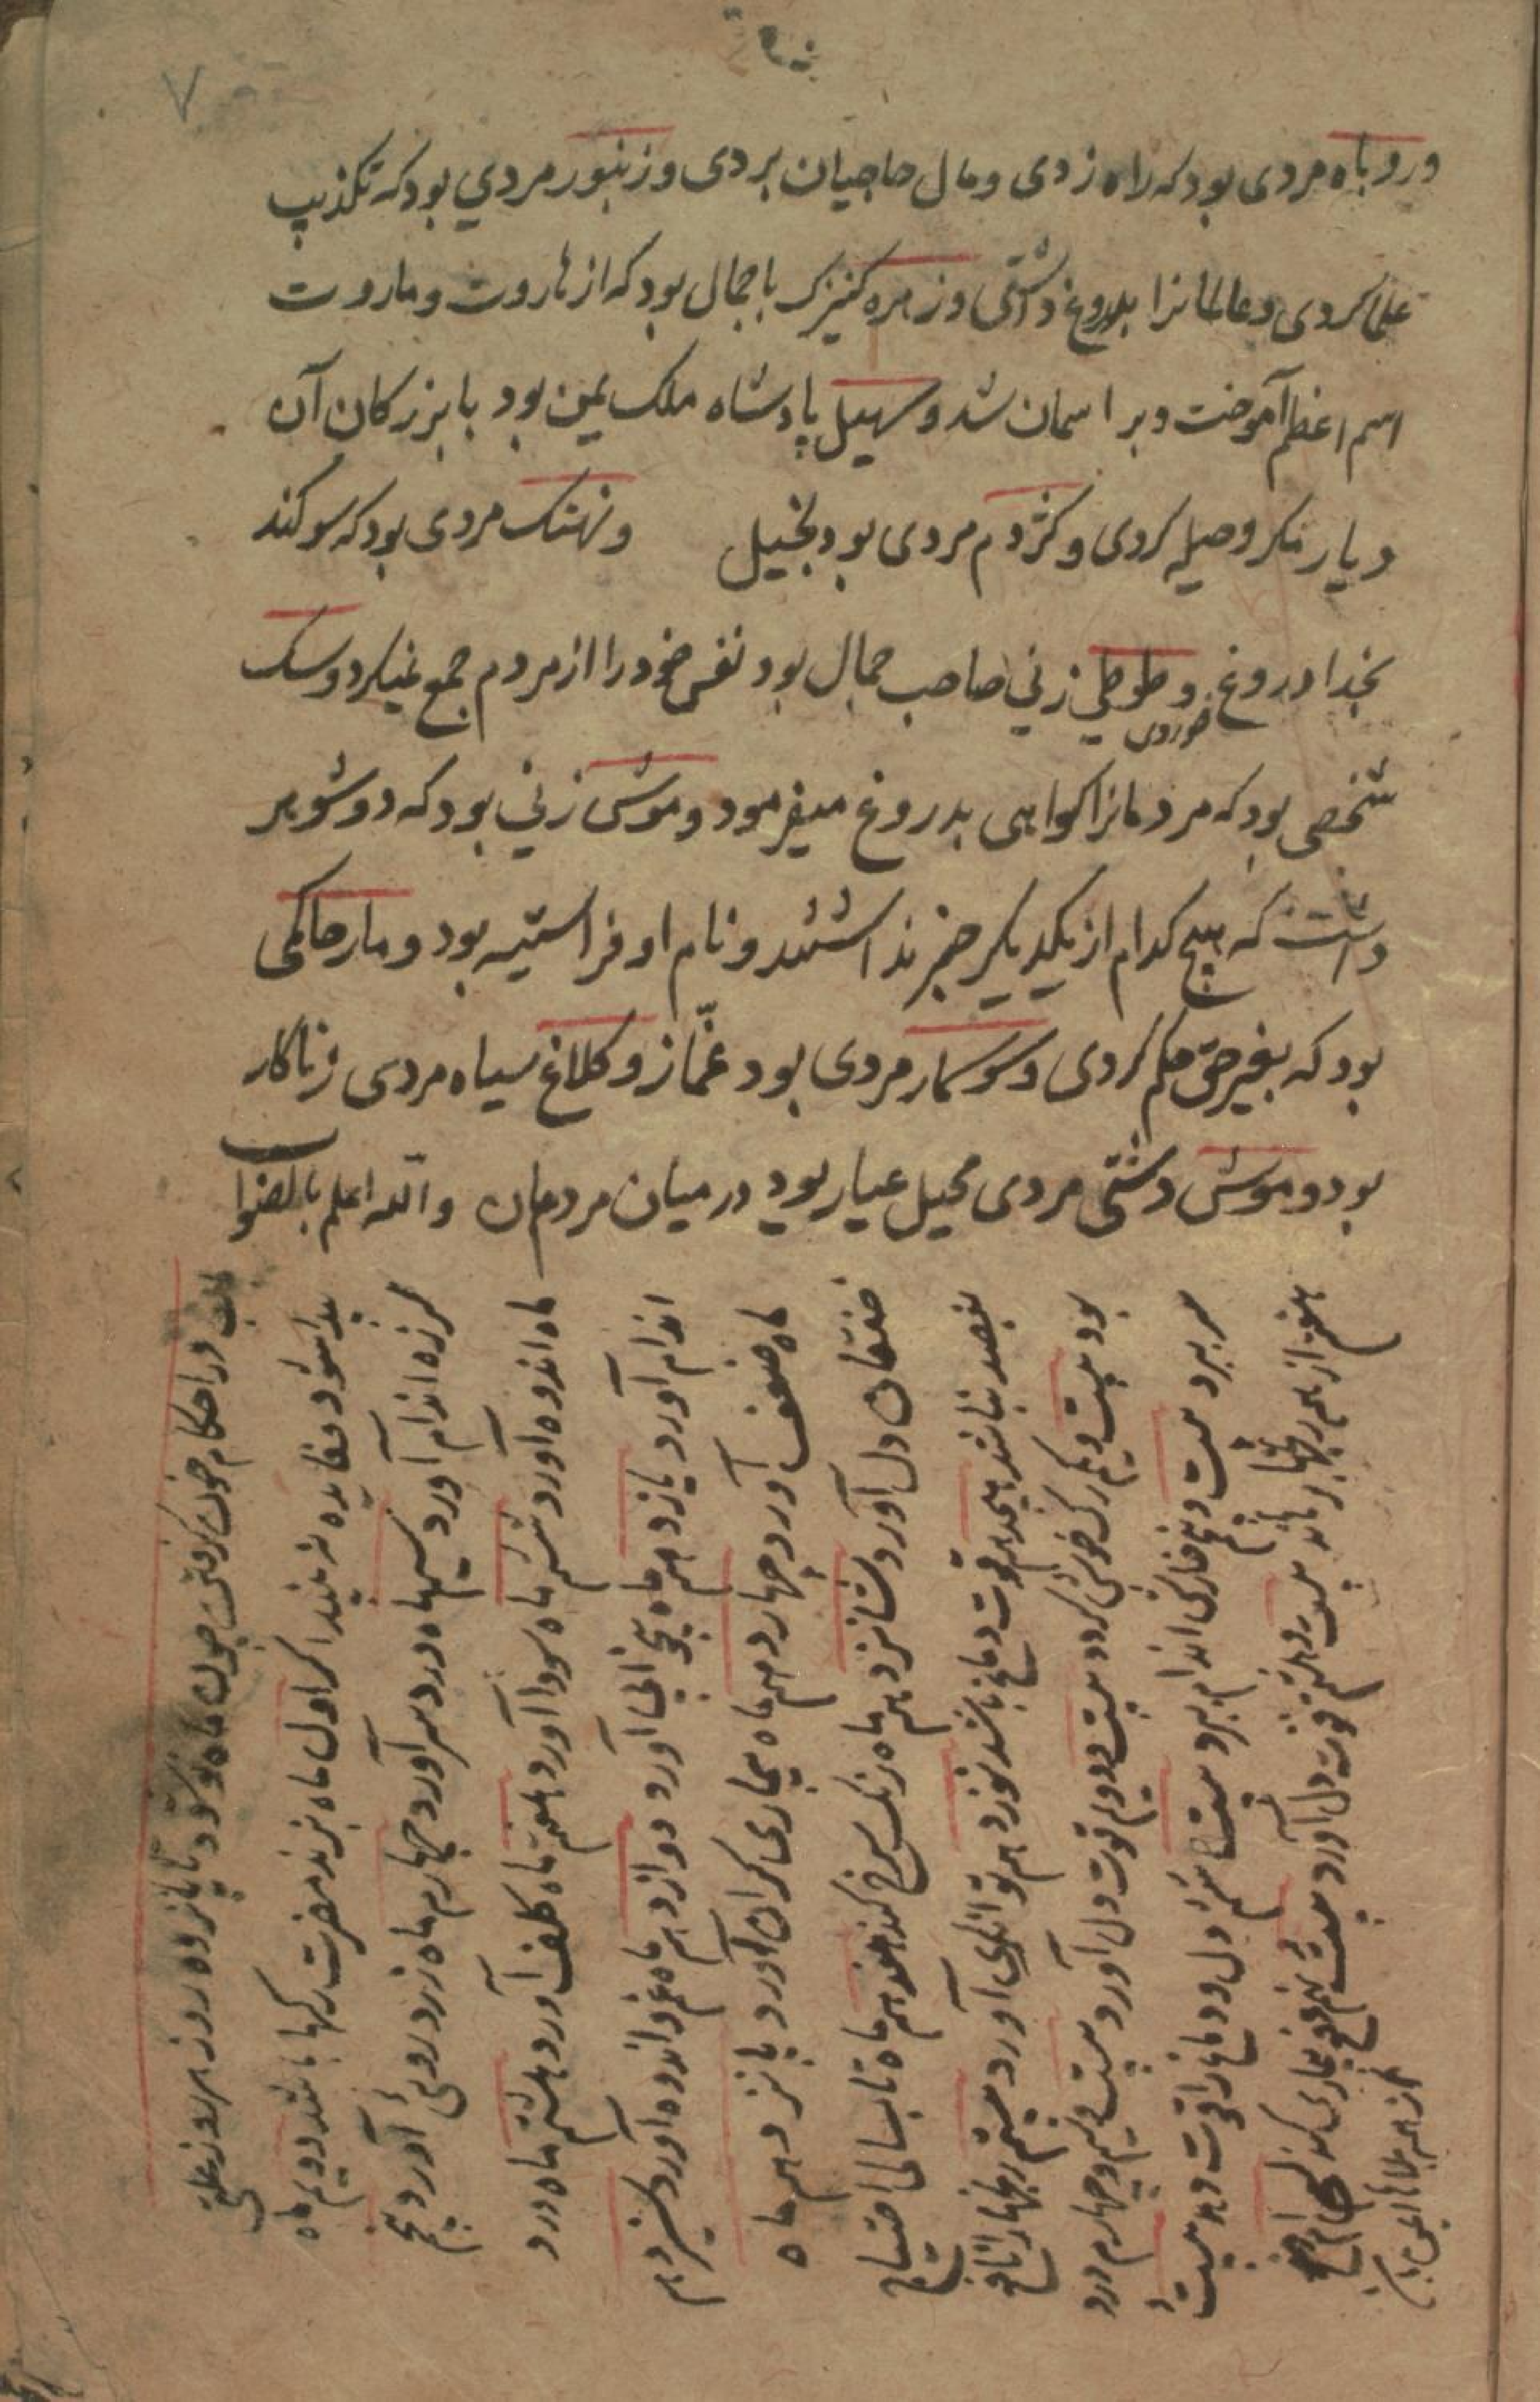 ٧
وروباه مردی بود که راه زدی و مال حاجیان بردی و زنبور مردي بود که تکذیب
علما کردی و عالمانرا بدروغ داشتی و زهره کنیزک باجمال بود که از هاروت و ماروت
اسم اعظم آموخت و بر اسمان شد و سهیل پادشاه ملک یمن بود با بزرکان آن
دیار مکر و حیله کردی و کژدم مردی بود بخیل ونهنک مردی بود که سوکند
بخدا دروغ خوردی و طوطي زني صاحب جمال بود نفس خود را از مردم جمع نمیکرد و سک
شخصی بود که مردمانرا کواهی بدروغ میفرمود و موش زني بود که دو شوهر
داشت که هیچ کدام از یکدیکر خبر نداشتند و نام او فراستیه بود و مار حاکمی
بود که بغیر حق حکم کردی و سوسمار مردی بود غمّاز و کلاغ سیاه مردی زناکار
بود و موش دشتی مردی محیل عیار بود در میان مردمان والله اعلم بالصواب
باب در احکام خون کرفتن چون ماه نو شود تا پانزده روز هر روز علتی
پیدا شود و فایده نه بیند اکر اول ماه بزند مضرت رکها باشد دویم ماه
لرزه اندام آورد سیم ماه درد سر آورد چهارم ماه زرد روئی آورد پنجم
ماه اندوه آورد ششم ماه سودا آورد هفتم ماه کلف آورد هشتم ماه درد
اندام آورد یازدهم ماه بیخوابی آورد دوازدهم ماه غم و اندوه آورد سیزدهم
ماه ضعف آورد چهاردهم ماه بیماری کران آورد پانزدهم ماه
خفقان دل آورد شانزدهم ماه رنک سرخ کند هفدهم ماه تا بسالی احتیاج
بفصد نباشد هیجدهم قوت دماغ باشد نوزدهم توانکری آورد بیستم رنجها را نافع
بود بیست و یکم رک خوش کردد بیست و دویم قوت دل آورد بیست و سیم و چهارم درد
سر برد بیست و پنجم خارش اندام ببرد بیست و ششم دل و دماغ را قوت دهد بیست و
هفتم از همه رنجها برهاند بیست و هشتم قوت دل آورد بیست و نهم دفع بیماری کند
از همه بلاها ایمن باشد